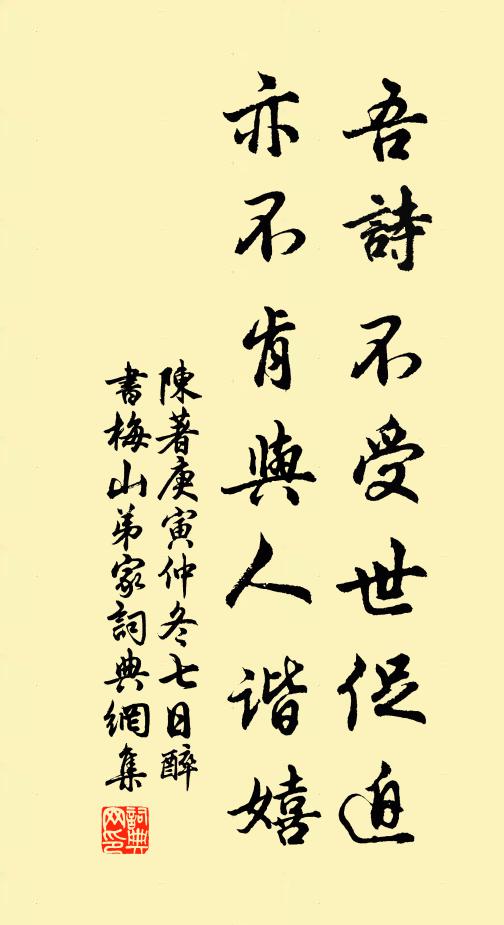 吾詩不受世促迫
亦不肯與人谐嬉
陳著庚寅仲冬七日醉
書梅山弟家詞典網集
詞典
网印